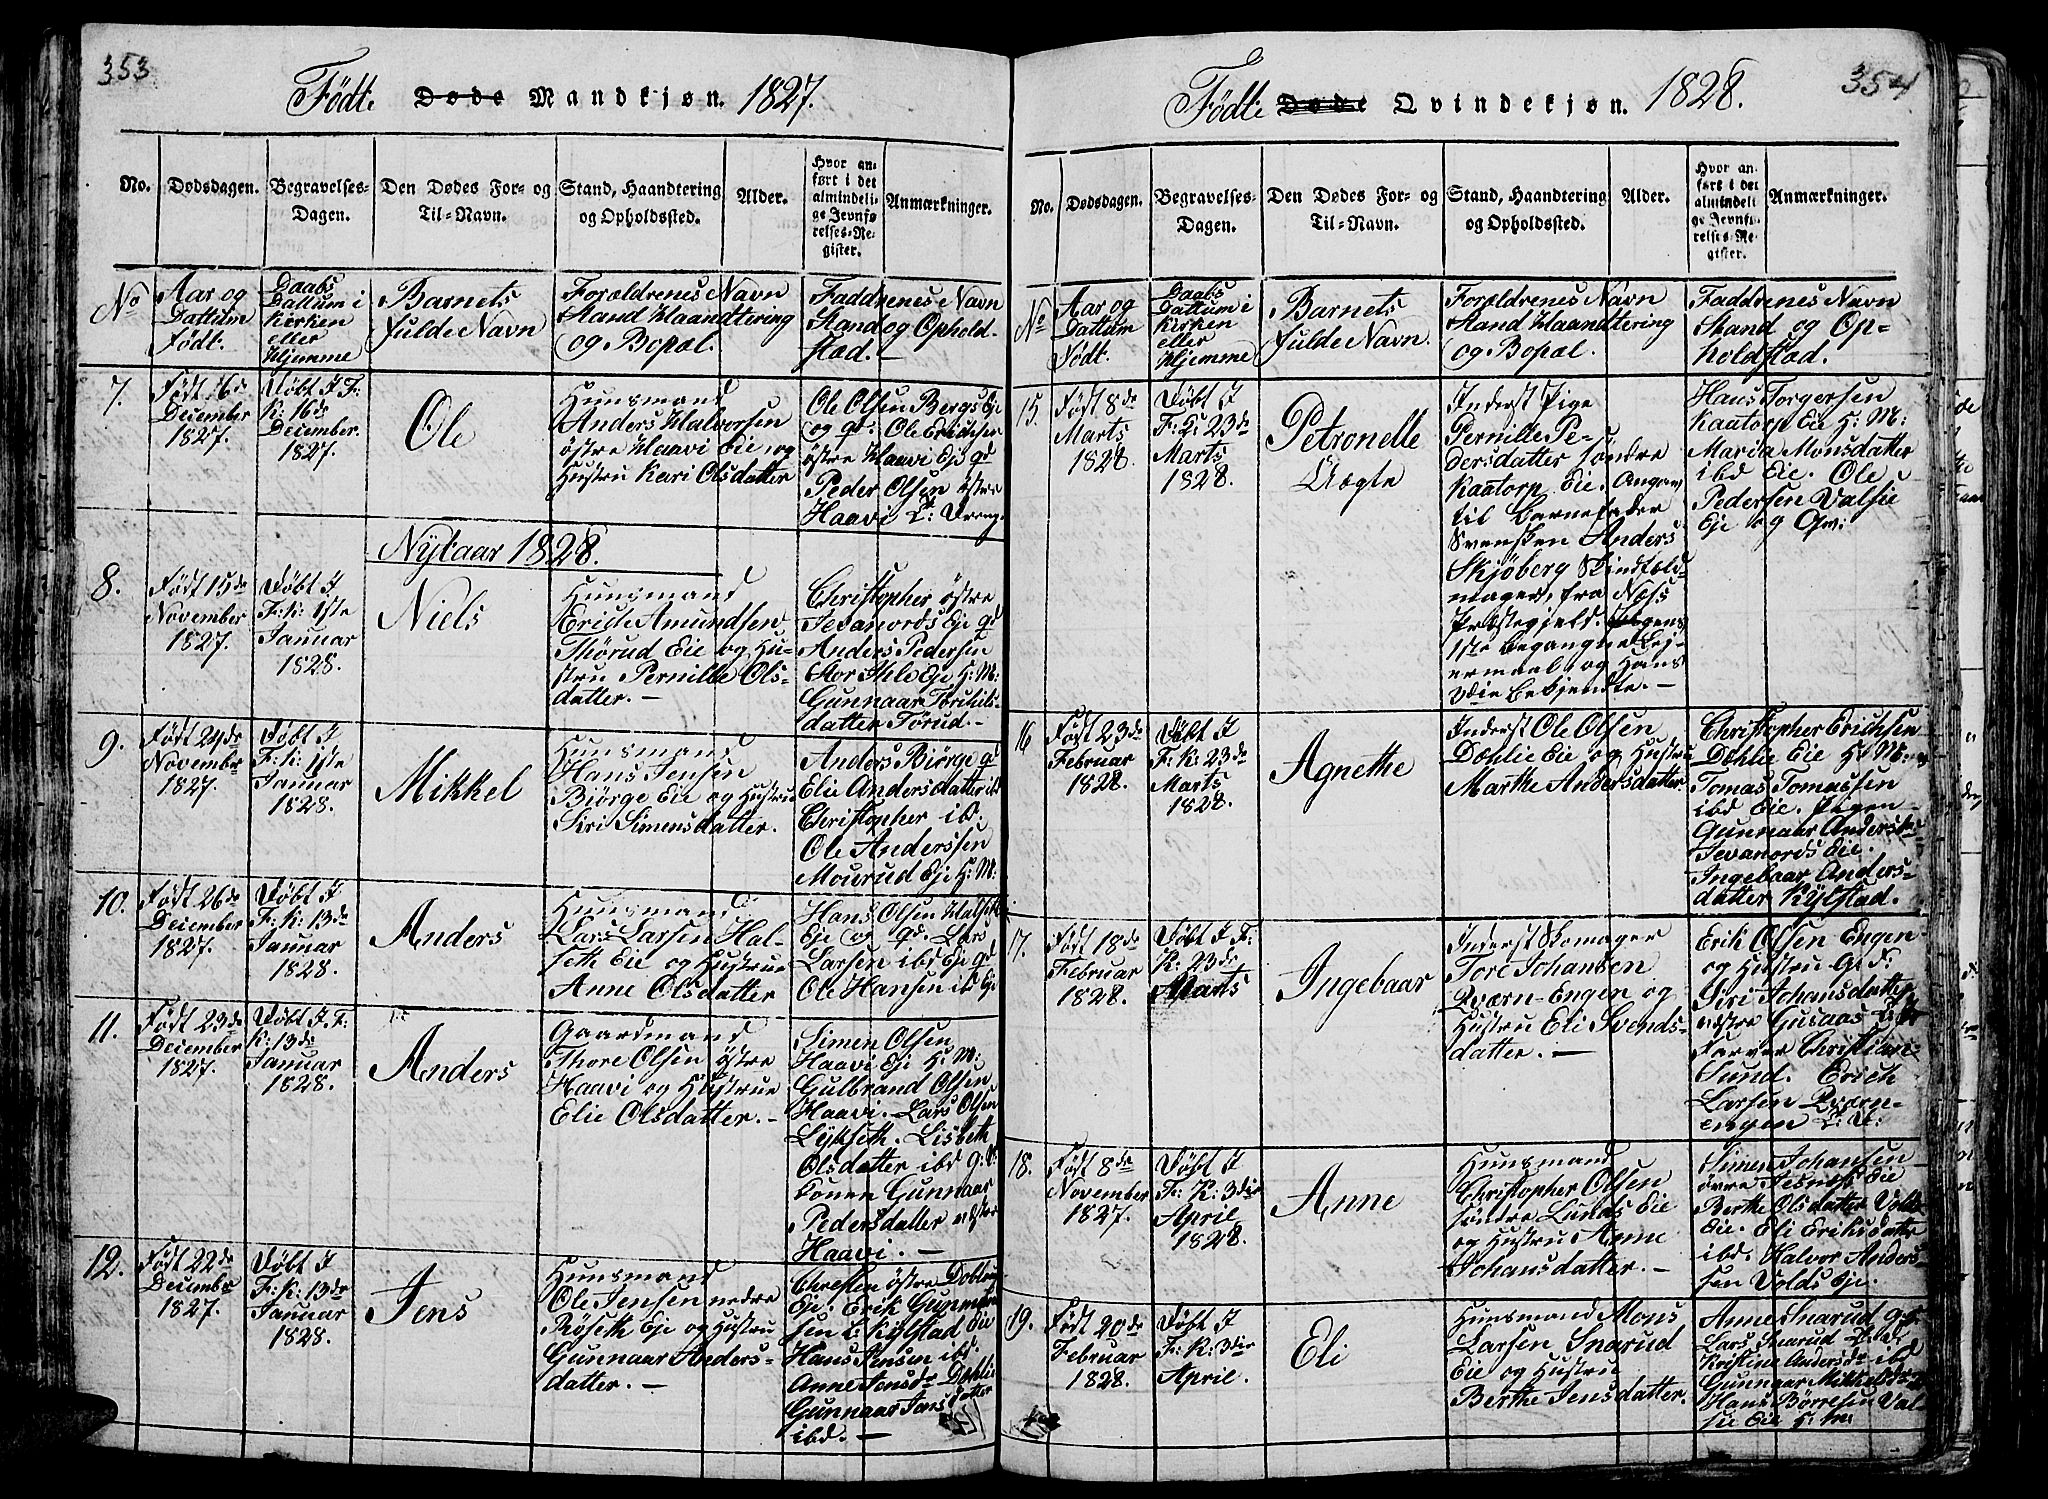 353
Födte Døde Mandkjøn. 1827.
No.
Dødsdagen.
Begravelses-
Dagen.
Den Dødes For- og
Til-Navn.
Stand, Haandtering
og Opholdssted.
Alder.
Hvor an-
ført i det
almindeli-
ge Jevnfø
relses-Re-
gister.
Anmærkninger.
No
Aar og
Dattum
født.
Daabs
Dattum i
Kirken
eller
Hjemme
Barnets
fulde Navn
Forældrenes Navn
Stand Haandtering
og Bopæl.
Faddrenes Navn
Stand og Ophold-
stad. —
7.
Født 16de
December
1827.
Døbt I F:
K: 16de
December.
1827.
Ole
Huusmand
Anders Halvorsen
østre Haavi Eie, og
Hustru Kari Olsdatter
Ole Olsen Bergs Eje
og qd: Ole Erichsen
østre Haavi Eje qd
Peder Olsen østre
Haavi L: Dreng
Nytaar 1828.
8.
Født 15de
November
1827.
Døbt I
F: K: 1ste
Januar
1828.
Niels
Huusmand
Erich Amundsen
Thørud Eie og Hu-
stru Pernille Ols-
datter. —
Christopher østre
Jevanords Eje qd
Anders Pedersen
Stor Ihle Eje H: M:
Gunnaar Torkils-
datter Tørud. —
9.
Født 24de
November
1827.
Døbt I
F: K: 1ste
Januar
1828.
Mikkel
Huusmand
Hans Jensen
Biørge Eie og Hustru
Siri Simensdatter.
Anders Biørge qd
Elie Andersdatter ibd
Christopher ibd:
Ole Anderssen
Mourud Eje H: M:
10.
Født 26de
December
1827.
Døbt I
F: K: 13de
Januar
1828.
Anders
Huusmand
Lars Larsen Hal-
seth Eie og Hustrue
Anne Olsdatter
Hans Olsen Halseth
Eje og qd. Lars
Larsen ibd Eje qd
Ole Hansen ibd Eje
11.
Født 23de
December
1827.
Døbt I F:
K: 13de
Januar
1828.
Anders
Gaardmand
Thore Olsen østre
Haavi og Hustrue
Elie Olsdatter. —
Simen Olsen
Haavi Eje H: M:
Gulbrand Olsen
Haavi. Lars Olsen
Lykseth. Lisbeth
Olsdatter ibd
Konen Gunnaar
Pedersdatter vestre
Haavi. —
12.
Født 22de
December
1827.
Døbt I
F: K: 13de
Januar
1828.
Jens
Huusmand
Ole Jensen nedre
Røseth Eje og Hustru
Gunnaar Anders-
datter. —
Christen østre
Eje: Erik
sen Kylstad Eie
Hans Jensen ibd.
Anne Jensdr Dohlie
Gunnaar Jensdatter
ibd. —
354
Födte Døde Qvindekjøn. 1828.
No.
Dødsdagen.
Begravelses-
Dagen.
Den Dødes For- og
Til-Navn.
Stand, Haandtering
og Opholdssted.
Alder.
Hvor an-
ført i det
almindeli
ge Jevnfø-
relses-Re-
gister.
Anmærkninger.
No
Aar og
Dattum
Født.
Daabs
Dattum i
Kirken
eller
Hjemme
Barnets
fulde Navn
Forældrenes Navn
Stand Haandtering
og Bopæl.
Faddrenes Navn
Stand og Op-
holdstad.
15.
Født 8de
Marts
1828.
Døbt I
F: K: 23de
Marts
1828.
Petronelle
Uægte
Inderst Pige
Pernille Pe-
dersdatter søndre
Kaatorp Eie. Angiven
til Barnefader
Svensken Anders
Skjöberg Skindfeld-
mager, fra Næss
Præstegjeld.
1ste begangne Lej-
ermaal og Hans
vdie bekjendte. —
Hans Torgersen
Kaatorp Eie H: M:
Marita Monsdatter
ibd Eie. Ole
Pedersen Valsie
Eje og
16
Født 23de
Februar
1828.
Døbt I
F: K: 23de
Marts
1828.
Agnethe
Inderst Ole Olsen
Dohlie Eie og Hustru
Marthe Andersdatter
Christopher Erichsen
Dohlie Eie H: M:
Tomas Tomassen
ibd Eie. Pigen
Gunnaar
Jevanords Eie.
Ingebaar Anders-
datter Kylstad.
17.
Født 18de
Februar
1828.
Døbt I F:
K: 23de
Marts
Ingebaar
Inderst Skomager
Tore Johansen
Qværn-Engen og
Hustru Eli Svends-
datter. —
Erik Olsen Engen
og Hustru
Siri Johansdatter
vestre Gusaas
Farver Christian
Sund. Erich
Larsen Qværn-
engen
18.
Født 8de
November
1827.
Døbt I
F: K: 3die
April
1828.
Anne
Huusmand
Christopher Olsen
søndre Lunds Eie
og Hustru Anne
Johansdatter. —
Simen Johansen
øvre Eie
Berthe Olsdatter Volds
Eie. Eli Eriksdatter
ibd. Halvor Anders-
sen Volds Eje.
19.
Født 20de
Februar
1828.
Døbt I
F: K: 3die
April.
Eli
Huusmand Mons
Larsen Snarud
Eie og Hustru
Berthe Jensdatter.
Anne Snarud
Lars Snarud
Kristine Andersdr ibd
Gunnaar
Hans Børresen Val-
sie Eie